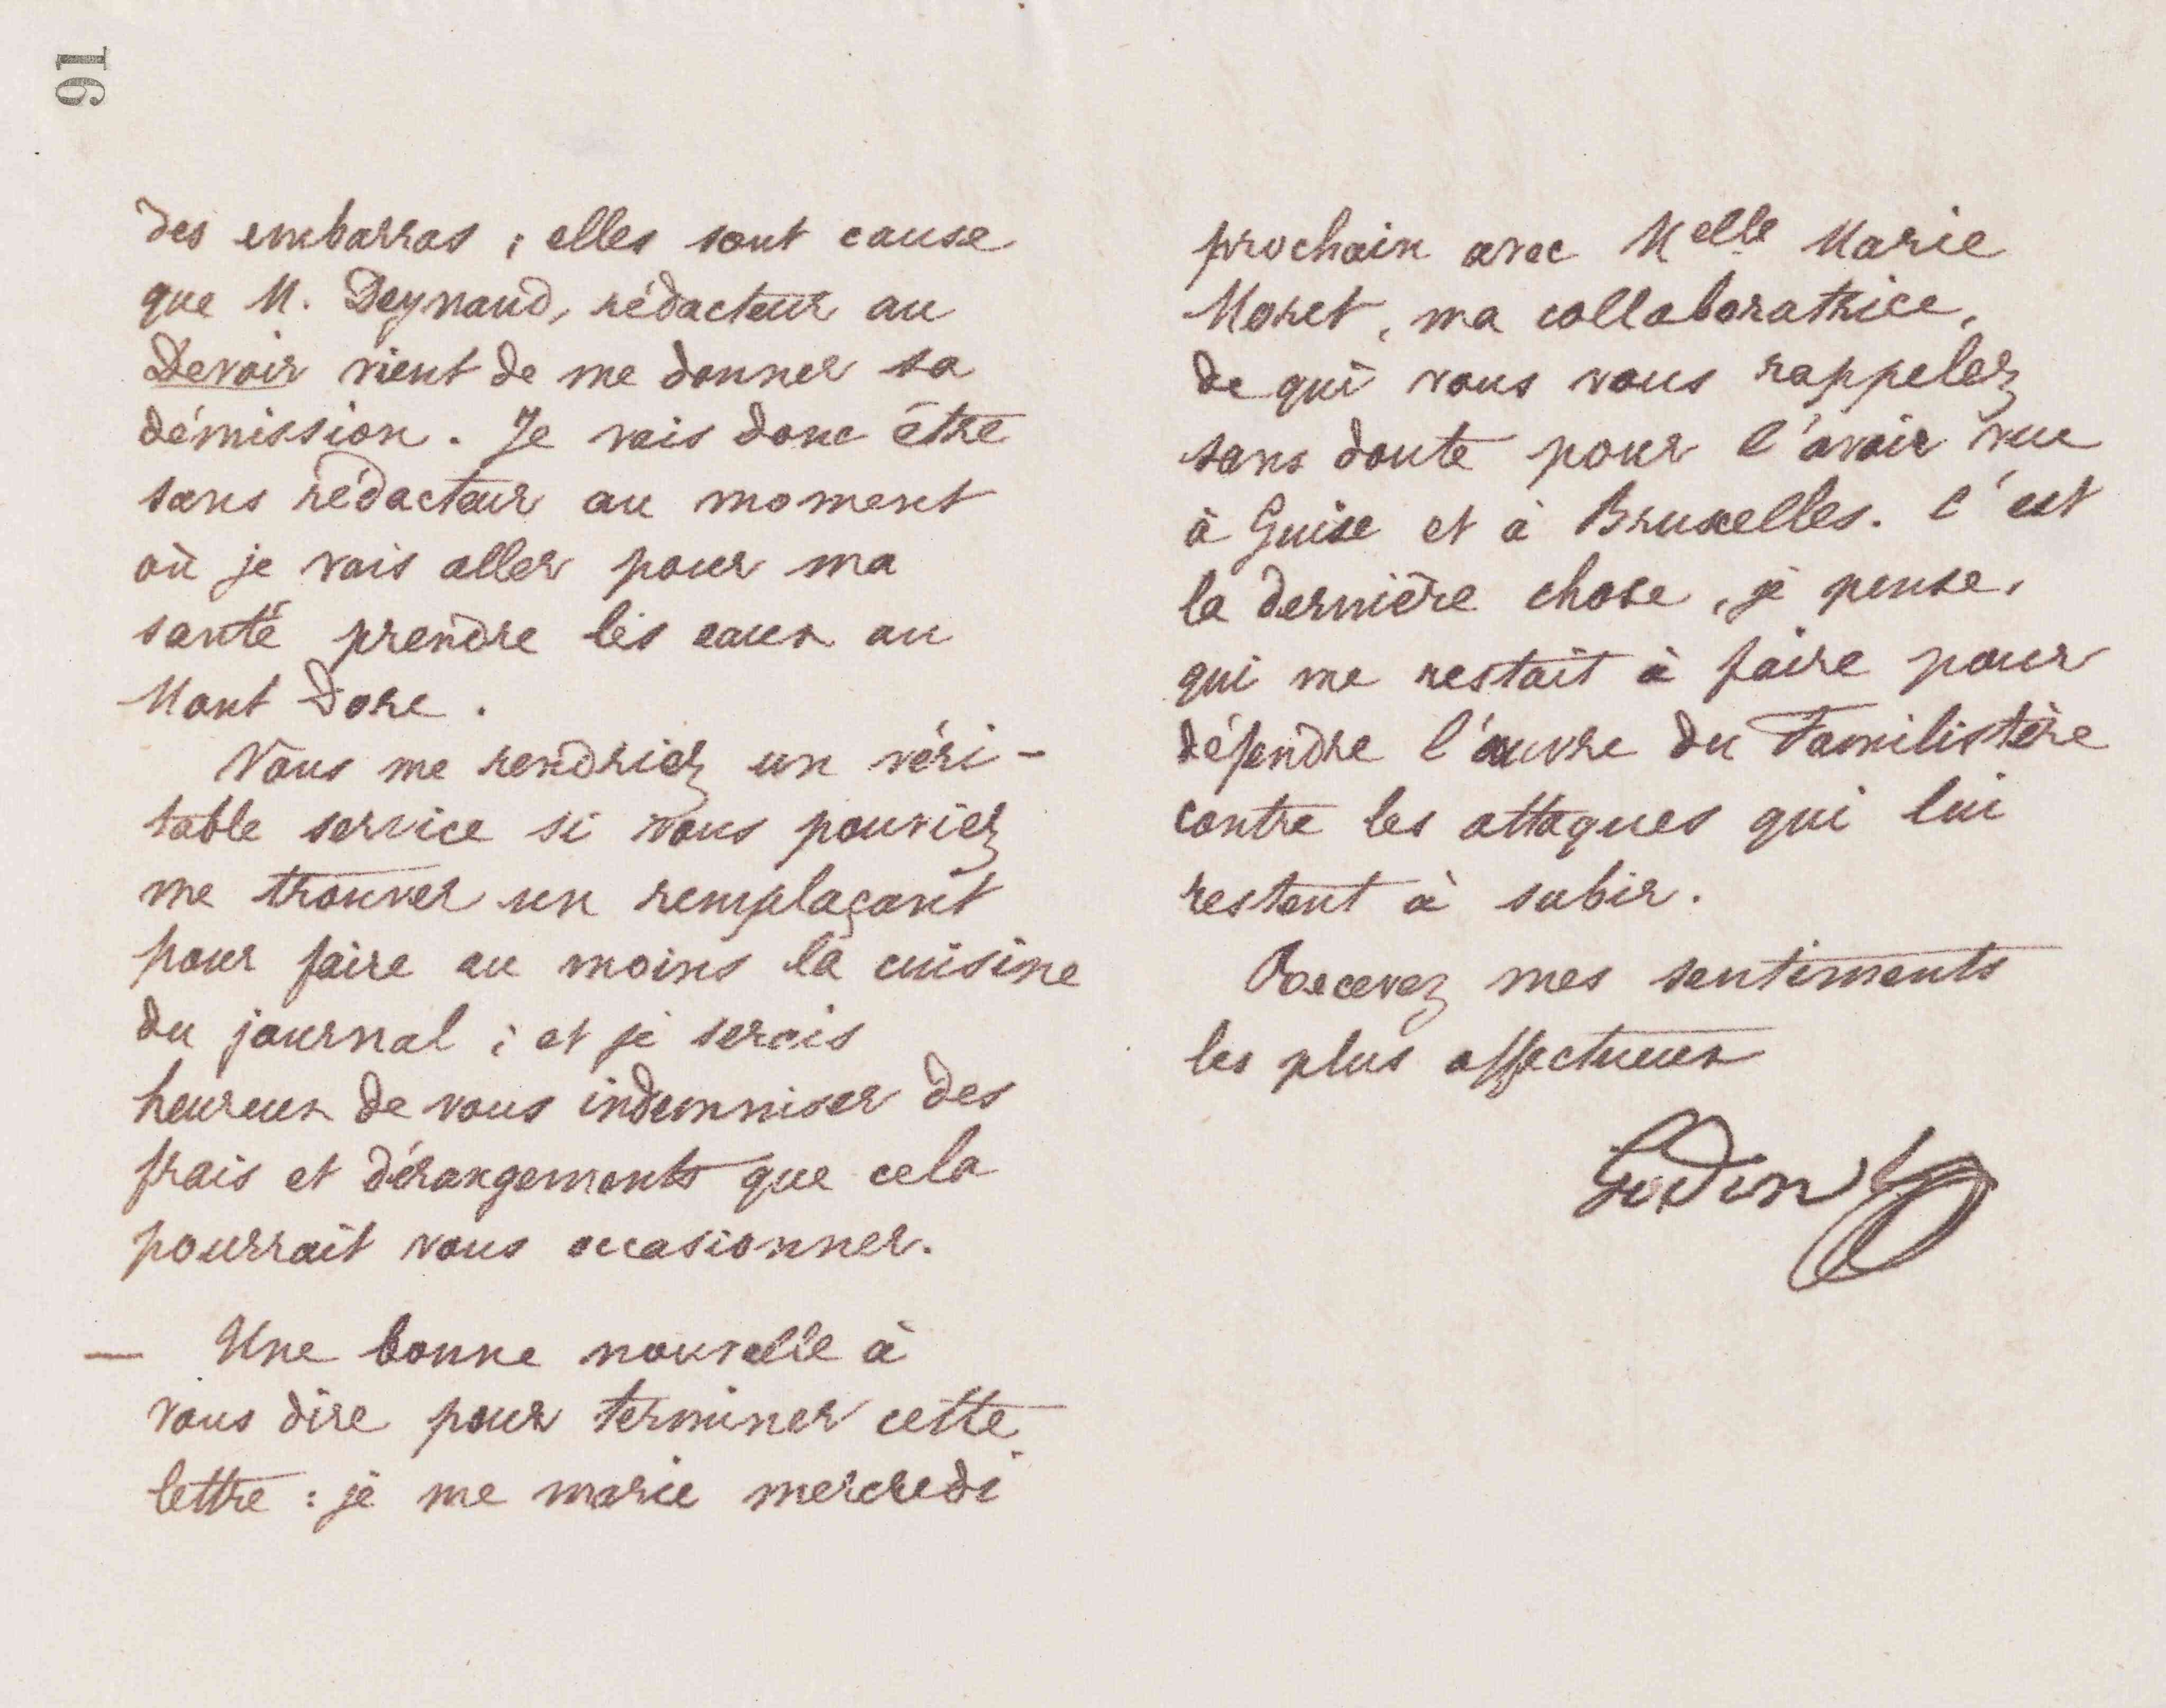 91
des embarras ; elles sont cause
que M. Deynaud, rédacteur au
Devoir vient de me donner sa
démission. Je vais donc être
sans rédacteur au moment
où je vais aller pour ma
santé prendre les eaux au
Mont Dore.
Vous me rendriez un véri-
table service si vous pouviez
me trouver un remplaçant
pour faire au moins la cuisine
du journal ; et je serais
heureux de vous indemniser des
frais et dérangements que cela
pourrait vous occasionner.
— Une bonne nouvelle à
vous dire pour terminer cette
lettre : je me marie mercredi
prochain avec Melle Marie
Moret, ma collaboratrice,
de qui vous vous rappelez
sans doute pour l'avoir vue
à Guise et à Bruxelles. C'est
la dernière chose, je pense,
qui me restait à faire pour
défendre l'œuvre du Familistère
contre les attaques qui lui
restent à subir.
Recevez mes sentiments
les plus affectueux
Godin